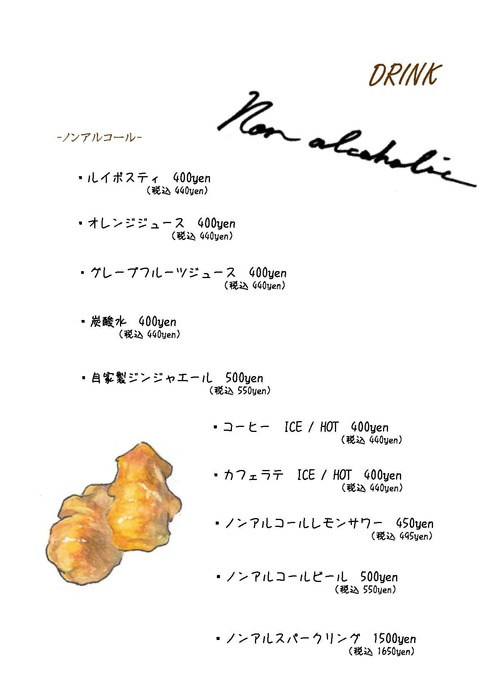 DRINK
Non alcoholic
-ノンアルコール-
・ルイボスティ 400yen
(税込 440yen)
・オレンジジュース 400yen
(税込 440yen)
・グレープフルーツジュース 400yen
(税込 440yen)
・炭酸水 400yen
(税込 440yen)
・自家製ジンジャエール 500yen
(税込 550yen)
・コーヒー ICE / HOT 400yen
(税込 440yen)
・カフェラテ ICE / HOT 400yen
(税込 440yen)
・ノンアルコールレモンサワー 450yen
(税込 495yen)
・ノンアルコールビール 500yen
(税込 550yen)
・ノンアルスパークリング 1500yen
(税込 1650yen)